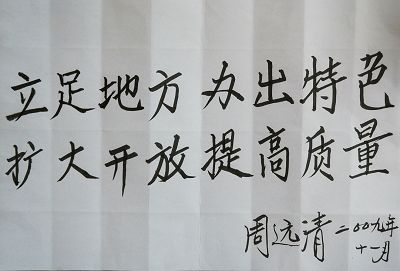 立足地方 办出特色
扩大开放 提高质量
周远清 二00九年
十一月